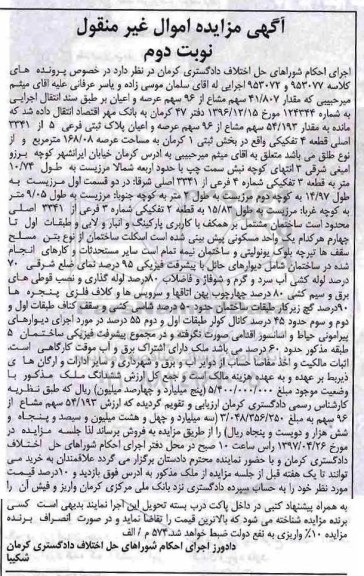 آگهی مزایده اموال غیر منقول
نوبت دوم
اجرای احکام شوراهای حل اختلاف دادگستری کرمان در نظر دارد در خصوص پرونده های
کلاسه ۹۵۳۰۷۷ و ۹۵۳۰۷۲ اجرایی له اقای سلمان موسی زاده و یاسر عرفانی علیه اقای میثم
میرحبیبی که مقدار ۴۱/۸۰۷ سهم مشاع از ۹۶ سهم عرصه و اعیان بر طبق سند انتقال اجرایی
به شماره ۱۲۴۳۴۴ مورخ ۱۳۹۶/۱۲/۱۵ دفتر ۴۷ کرمان به بانک مهر اقتصاد انتقال داده شد که
مانده به مقدار ۵۴/۱۹۳ سهم مشاع از ۹۶ سهم عرصه و اعیان پلاک ثبتی فرعی ۵ از ۳۳۴۱
اصلی قطعه ۴ تفکیکی واقع در بخش ثبتی ۱ کرمان به مساحت عرصه ۱۶۸/۰۸ مترمربع و از
نوع طلق می باشد متعلق به اقای میثم میرحبیبی به ادرس کرمان خیابان ایرانشهر کوچه برزو
امیقی شرقی ۳ انتهای کوچه نبش سمت چپ با حدود اربعه شمالا مرزیست به طول ۱۰/۷۴
متر به قطعه ۳ تفکیکی شماره ۴ فرعی از ۳۳۴۱ اصلی شرقا: در دو قسمت اول مرزیست به
طول ۱۴/۹۷ به کوچه دوم مرزیست به طول ۲ متر به کوچه جنوبا: مرزیست به طول ۹/۰۵ متر
به کوچه غربا: مرزیست به طول ۱۵/۸۲ به قطعه ۲ تفکیکی شماره ۳ فرعی از ۳۳۴۱ اصلی
محدود است ساختمان مشتمل بر همکف با کاربری پارکینگ و انبار و لابی و طبقات اول تا
چهارم هرکدام یک واحد مسکونی پیش بینی شده است اسکلت ساختمان از نوع بتن مسلح
سقف ها تیرچه بلوک یونولیتی و ساختمان نیمه تمام است سایر مستحدثات و کارهای انجام
شده در ساختمان شامل دیوارهای حائل با پیشرفت فیزیکی ۹۵ درصد نمای ضلع شرقی ۷۰
درصد لوله کشی آب سرد و گرم و شوفاژ و فاضلاب ۸۰ درصد لوله گذاری و نصب قوطی های
برق و سیم کشی ۸۰ درصد چهارچوب بهن اتاقها و سرویس ها و کلاف فلزی پنجره ها
۹۰ درصد گچ زیرکار طبقات ساختمان حدود ۵۰ درصد شاسی کشی و سقف کناف طبقات اول و
دوم و سوم حدود ۴۵ درصد کانال کولر طبقات اول و دوم ۵۵ درصد در مورد اجرای دیوارهای
پیرامونی حیاط و اسانسور اقدامی صورت نگرفته و در مجموع پیشرفت فیزیکی ساختمان ۵
طبقه مذکور حدود ۶۰ درصد می باشد ملک دارای اشتراک برق و آب موقت کارگاهی است.
اثبات مالکیت و اخذ مفاصا حساب از دوایر آب و برق و شهرداری و سایر ادارات و ارگان های
ذیربط بر عهده و به عهده هزینه مالک است و جمع کل ارزش ششدانگ ملک مذکور با
وضعیت موجود مبلغ ۵/۴۰۰/۰۰۰/۰۰۰ (پنج میلیارد و چهارصد میلیون) ریال که طبق نظریه
کارشناس رسمی دادگستری کرمان ارزیابی و تقویم گردیده که ارزش ۵۴/۱۹۳ سهم مشاع از
۹۶ سهم به مبلغ ۳/۰۴۸/۳۵۶/۲۵۰ (سه میلیارد و چهل و هشت میلیون و سیصد و پنجاه و
شش هزار و دویست و پنجاه ریال) را از طریق مزایده به فروش برساند لذا جلسه مزایده در
مورخ ۱۳۹۷/۰۴/۲۶ راس ساعت ۱۰ صبح در محل دفتر اجرای احکام شوراهای حل اختلاف
دادگستری کرمان و با حضور نماینده محترم دادستان برگزار می گردد علاقمندان به خرید می
توانند تا یک هفته قبل از جلسه مزایده از ملک مذکور به ادرس فوق بازدید و ۱۰ درصد قیمت
مورد نظر خود را به حساب سپرده دادگستری نزد بانک ملی مرکزی کرمان واریز و فیش آن را
به همراه پیشنهاد کتبی در داخل پاکت درب بسته تحویل این اجرا نمایند بدیهی است کسی
برنده مزایده شناخته می شود که بالاترین قیمت را تقاضا نماید و در صورت انصراف برنده
مزایده ۱۰٪ واریزی به نفع دولت ضبط خواهد شد. ۵۷۴ م / الف
دادورز اجرای احکام شوراهای حل اختلاف دادگستری کرمان
شکیبا